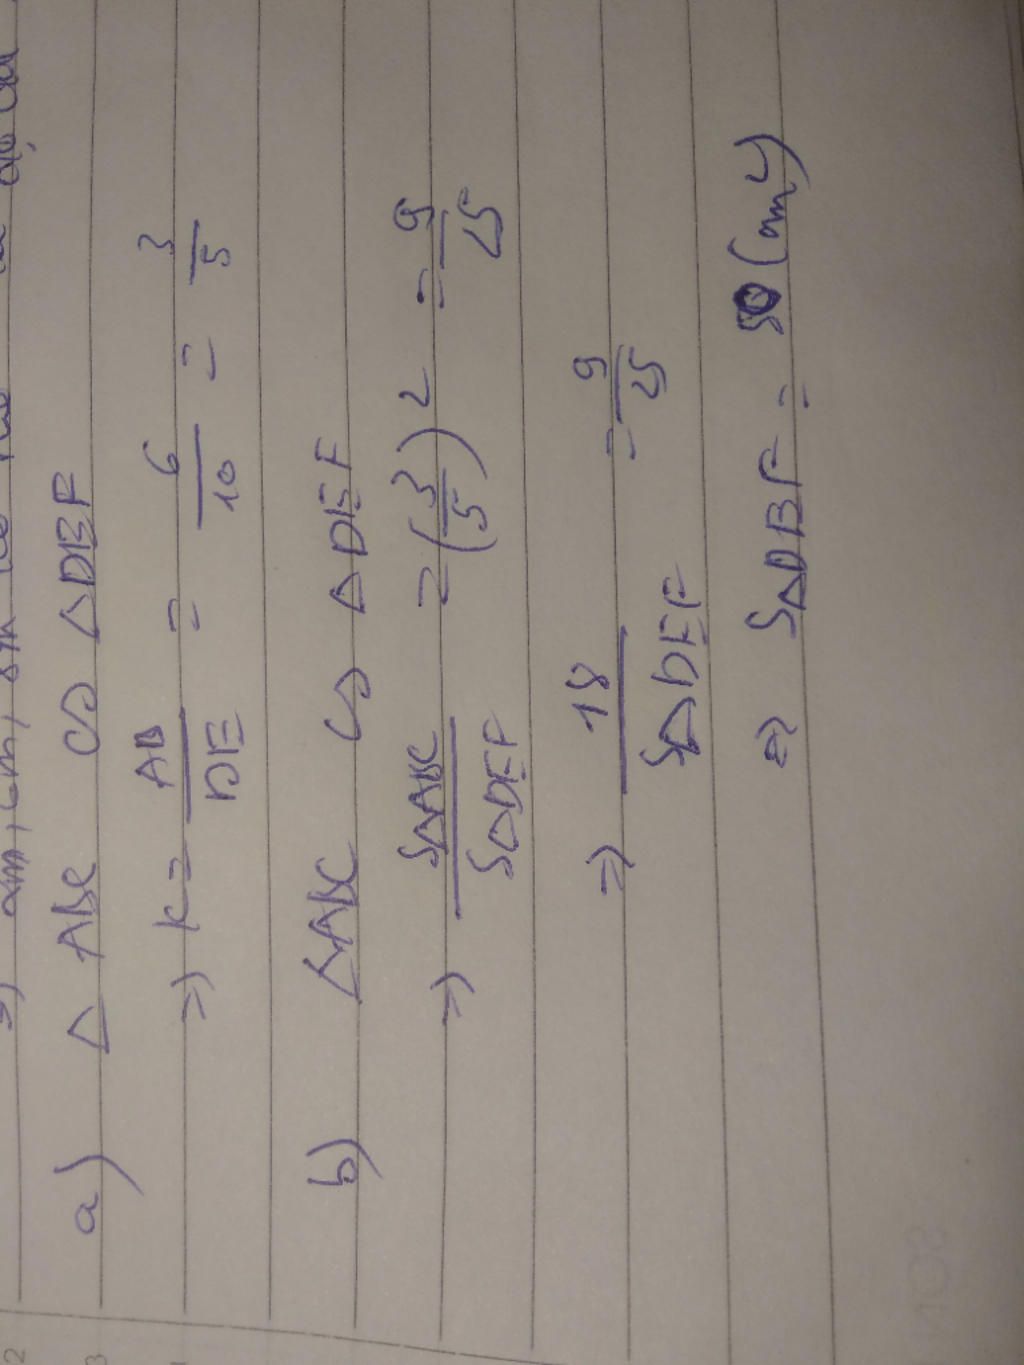 a) Δ ABC ∽ ΔDEF
=> k = AB/DE = 6/10 = 3/5
b) ΔABC ∽ ΔDEF
=> SΔABC/SΔDEF = (3/5)² = 9/25
=> 18/SΔDEF = 9/25
=> SΔDEF = 50 (cm²)